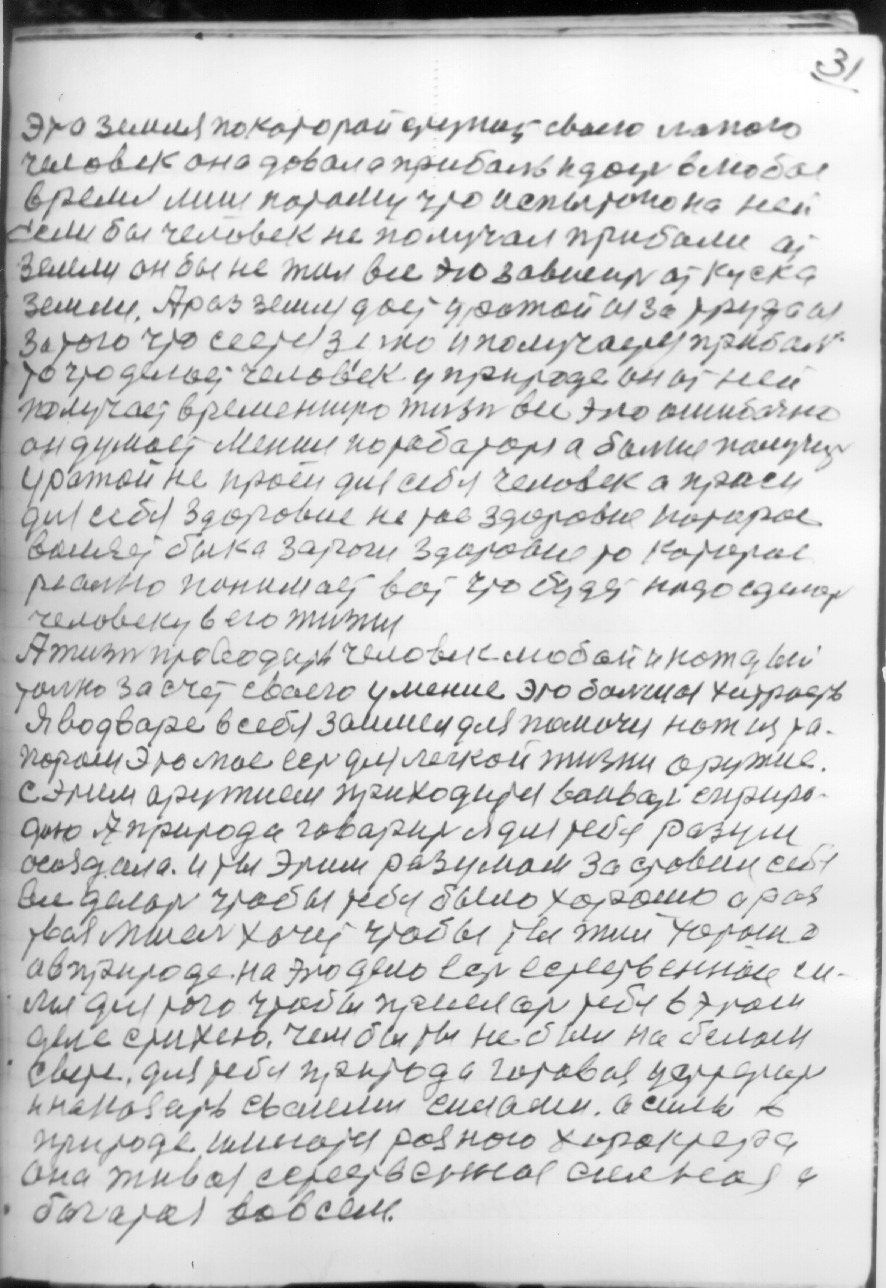 31
Эта земля по каторай ступит свою лапою
человек она довала прибаль и дает в любое
время лиш потаму что испытоно на ней
если бы человек не получал прибали от
земли он бы не жил все это зависит от куска
земли. А раз земля дает уражай из за труда и
за того что сеется за то и получается прибаль
то что делает человек у природе он от ней
получает временную жизн все это ошибачно
он думает менше поработать а болше получит
уражай не проси для себя человек а праси
для себя здоровие не тое здоровие каторое
быка за роги здоровие то каторае
реално понимает вот что будет надо сделат
человеку в его жизни
А жизн проводить человек любой и каждый
толко за счет своего умение это болшая хитрасть
в себя для помочи нож из та-
пором это мае ест для легкой жизни оружие.
с этим аружием приходится воиват с приро-
дою А природа говарит я для тебя разум
создала. и ты этим разумам заставил себя
все делат чтобы тебя было харашо а раз
твая мысел хочет чтобы ты жил хорошо
а в природе на это дело ест естественное си-
лы для того чтобы прислат тебя в этом
деле стихею. чем бы ты не был на белом
свете. для тебя природа готовая
и наказать своими силами. а силы в
природе разного характера
она живая естественная силная и
багатая вовсем.